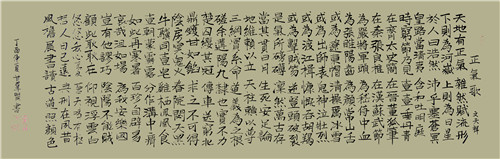 正氣歌 文天祥
天地有正氣 雜然賦流形
下則為河嶽 上則為日星
於人曰浩然 沛乎塞蒼冥
皇路當清夷 含和吐明庭
時窮節乃見 一一垂丹青
在齊太史簡 在晉董狐筆
在秦張良椎 在漢蘇武節
為嚴將軍頭 為嵇侍中血
為張睢陽齒 為顏常山舌
或為遼東帽 清操厲冰雪
或為出師表 鬼神泣壯烈
或為渡江楫 慷慨吞胡羯
或為擊賊笏 逆豎頭破裂
是氣所磅礴 凜烈萬古存
當其貫日月 生死安足論
地維賴以立 天柱賴以尊
三綱實系命 道義為之根
嗟余遘陽九 隸也實不力
楚囚纓其冠 傳車送窮北
鼎鑊甘如飴 求之不可得
陰房闃鬼火 春院閟天黑
牛驥同一皂 雞棲鳳凰食
一朝蒙霧露 分作溝中瘠
如此再寒暑 百沴自辟易
哀哉沮洳場 為我安樂國
豈有他繆巧 陰陽不能賊
顧此耿耿在 仰視浮雲白
悠悠我心悲 蒼天曷有極
哲人日已遠 典刑在夙昔
風簷展書讀 古道照顏色